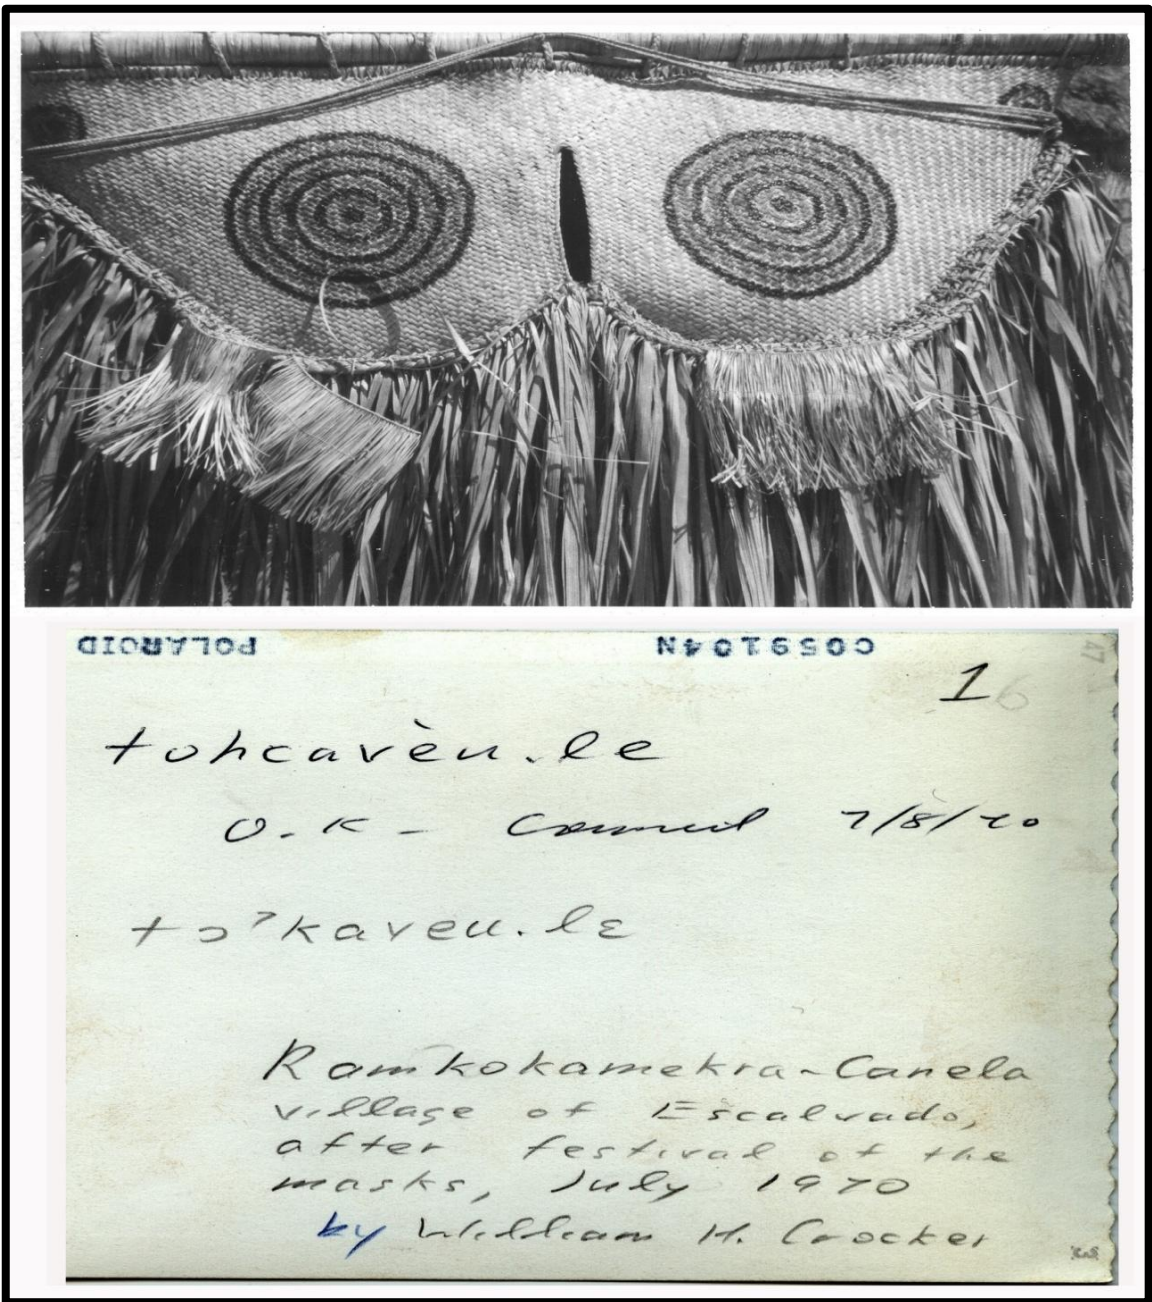 POLAROID C059104N
47
16
tohcavèu.le
O.K - Council 7/8/70
tɔˀkaveu.lɛ
Ramkokamekra-Canela
village of Escalvado,
after festival of the
masks, July 1970
by William H. Crocker